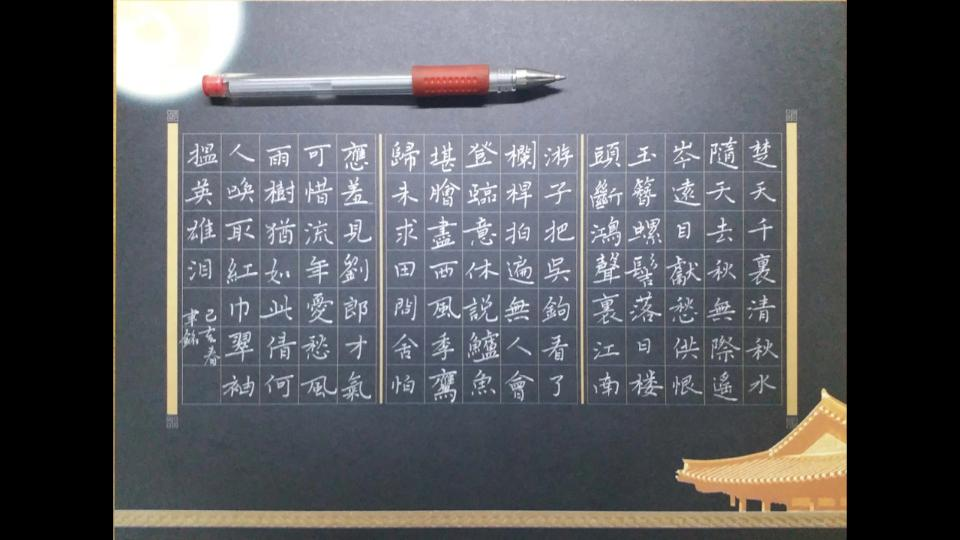 楚天千裏清秋水
隨天去秋無際遙
岑遠目獻愁供恨
玉簪螺髻落日楼
頭斷鴻聲裏江南
游子把吳鉤看了
欄桿拍遍無人會
登臨意休説鱸魚
堪膾盡西風季鷹
歸未求田問舍怕
應羞見劉郎才氣
可惜流年愛愁風
雨樹猶如此倩何
人喚取紅巾翠袖
揾英雄泪
己亥春